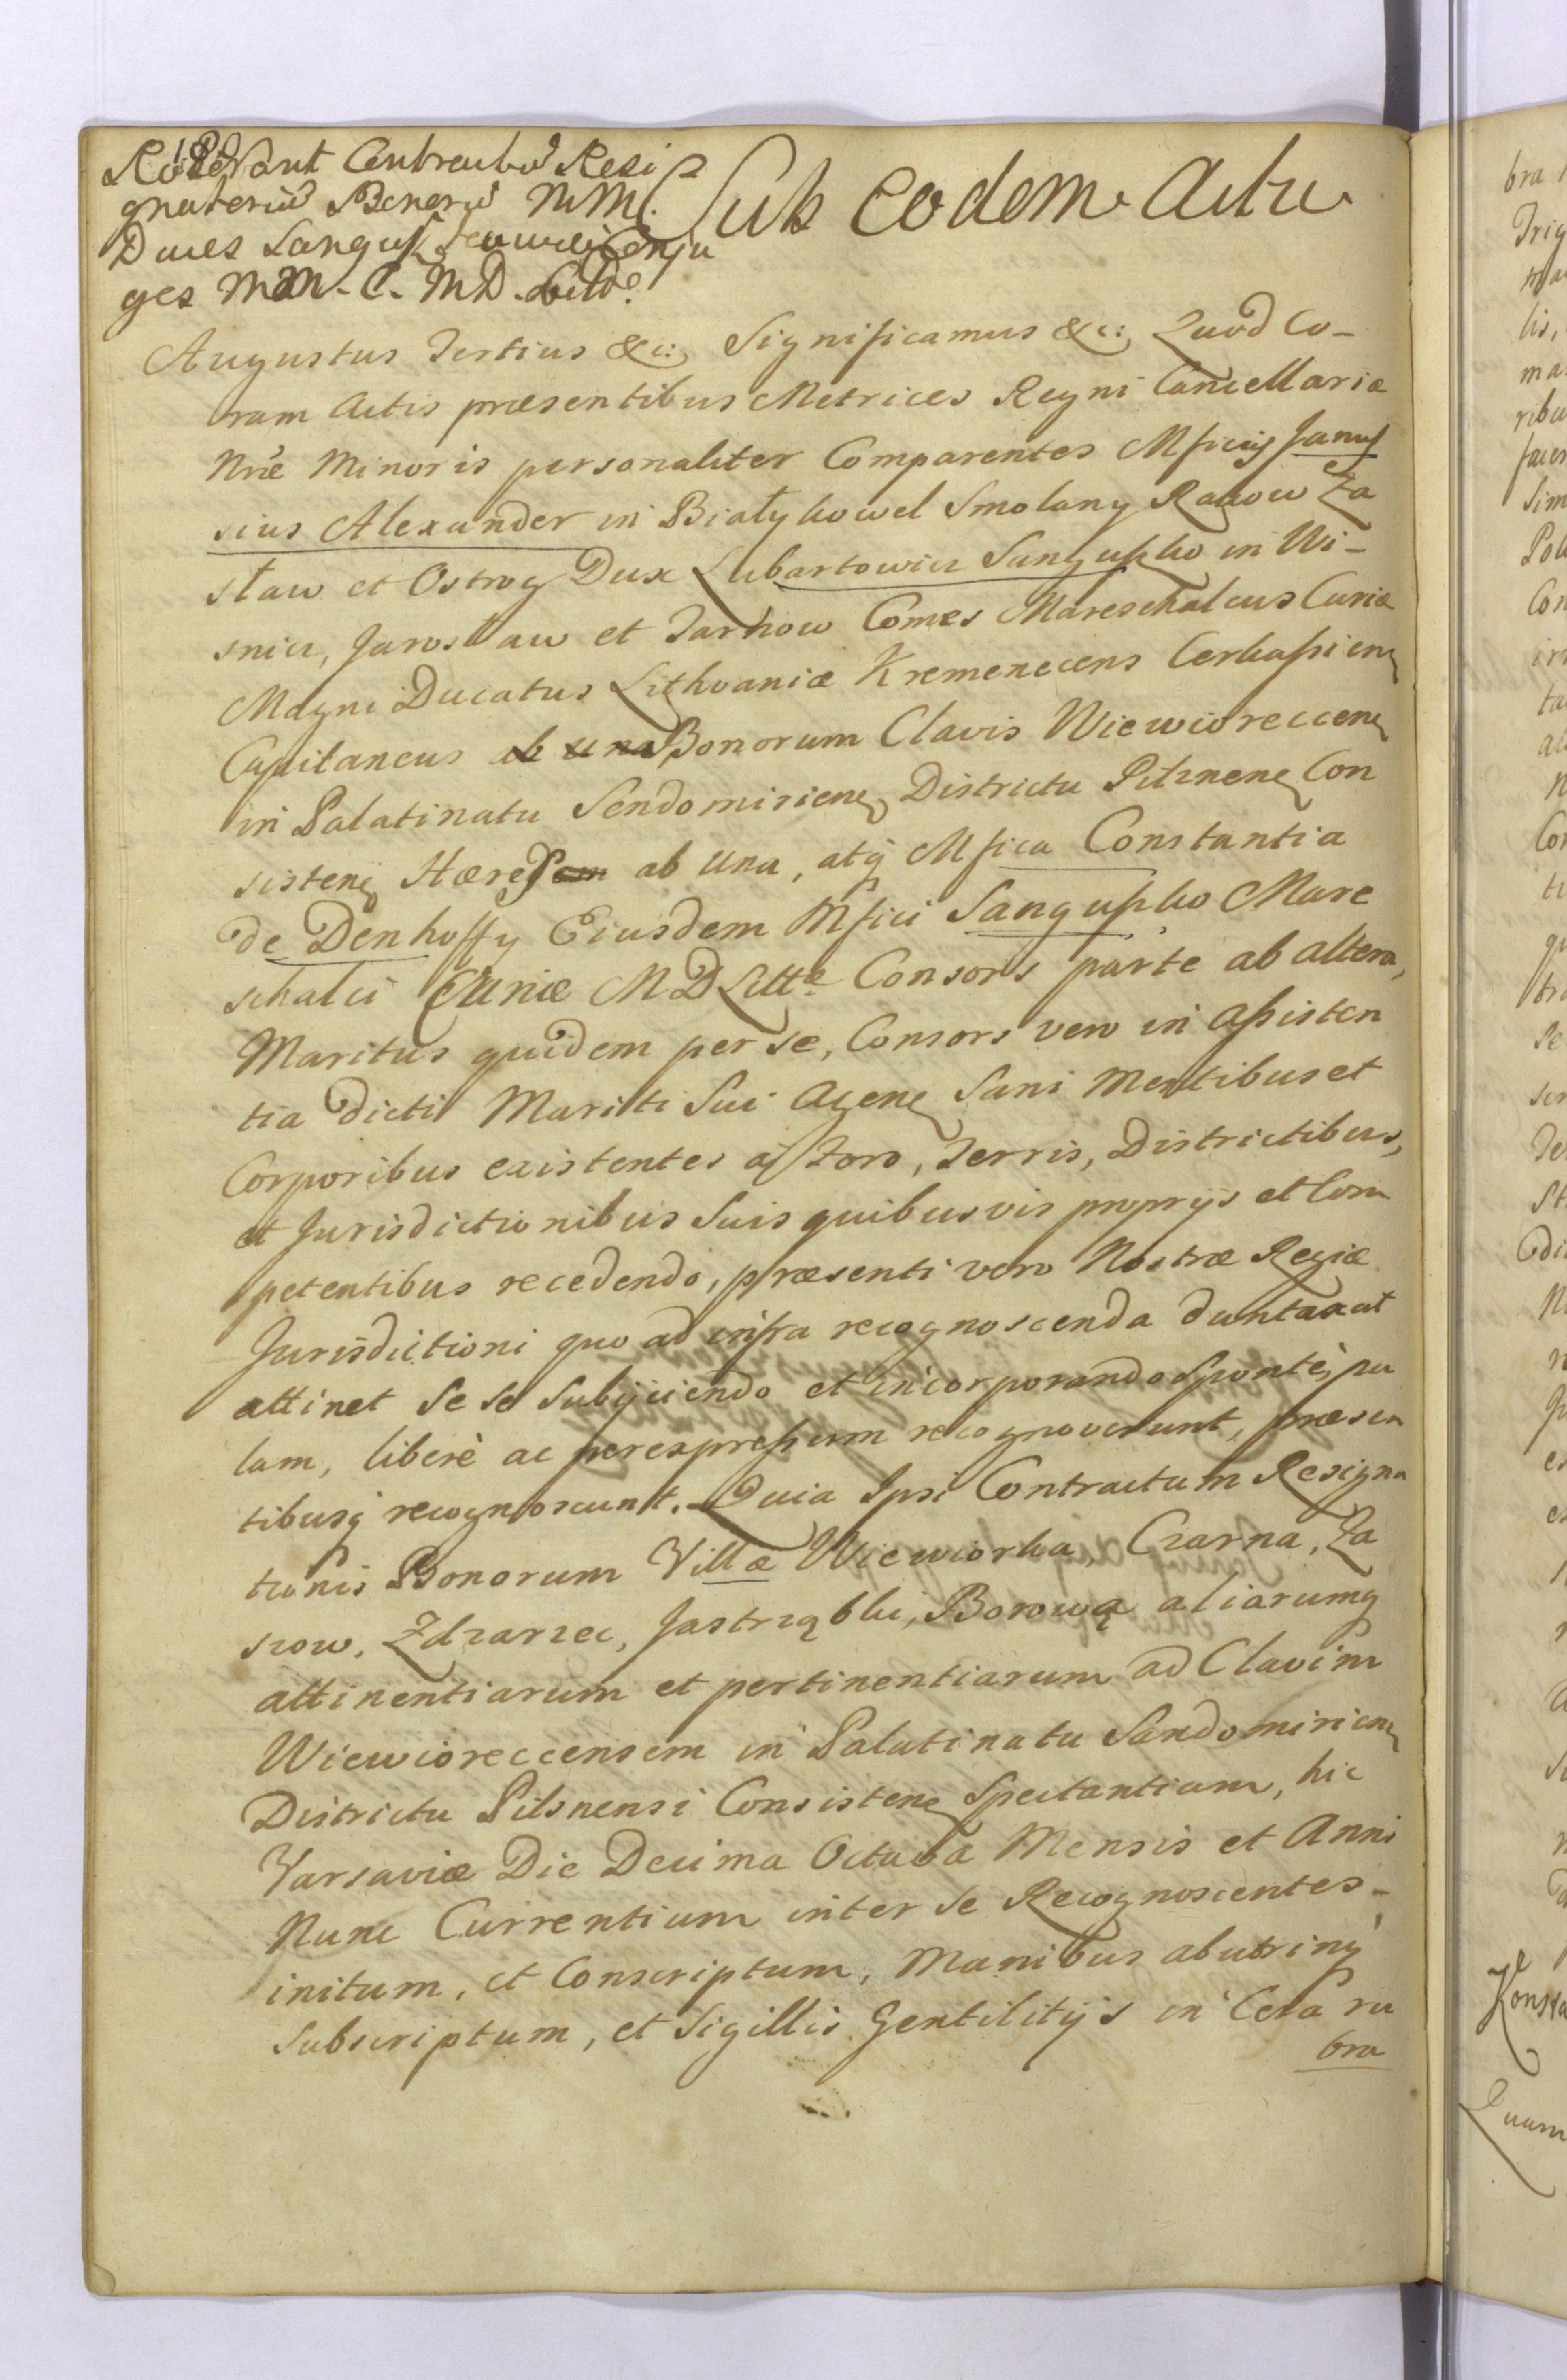 180
Roborant Contractum Resi
gnatorium Bonorum MM.
Duces Sangusz Conju
ges MM. C. M D. Litt.
Sub eodem Actu
Augustus Tertius &c: Significamus &c: Quod Co-
ram Actis præsentibus Metrices Regni Cancellariæ
Nræ Minoris personaliter Comparentes Mficus Janus
sius Alexander in Białykowel Smolany Rakow Za
sław et Ostrog Dux Lubartowicz Sanguszko in Wi-
snicz, Jarosław et Tarnow Comes Mareschalcus Curiæ
Magni Ducatus Lithvaniæ Kremenecens Cerkassien
Capitaneus ab una Bonorum Clavis Wiewioreccen
in Palatinatu Sendomirien Districtu Pilznen Con
sisten Hæres ab una, atq Mfica Constantia
de Denhoffy Eiusdem Mfici Sanguszko Mare
schalci Curiæ M D Litt Consors parte ab altera,
Maritus quidem per se, Consors vero in assisten
tia dicti Mariti Sui agen Sani Mentibus et
Corporibus existentes a foro, Terris, Districtibus,
et Jurisdictionibus Suis quibusvis proprijs et Com
petentibus recedendo, præsenti vero Nostræ Regiæ
Jurisdictioni quo ad infra recognoscenda duntaxat
attinet Se se Subijciendo et incorporando Spontè, pa
lam, liberè ac per expressum recognoverunt, præsen
tibusq recognoscunt. Quia Ipsi Contractum Resigna
tionis Bonorum Villæ Wiewiorka, Czarna, Za
szow, Zdzarzec, Jastrząbki, Borową aliarumq
attinentiarum et pertinentiarum ad Clavim
Wiewioreccensem in Palatinatu Sandomirien
Districtu Pilsnensi Consisten Spectantium, hic
Varsaviæ Die Decima Octava Mensis et Anni
Nunc Currentium inter se Recognoscentes
initum, et Conscriptum, Manibus ab utrinq
Subscriptum, et Sigillis Gentilitijs in Cera ru
bra